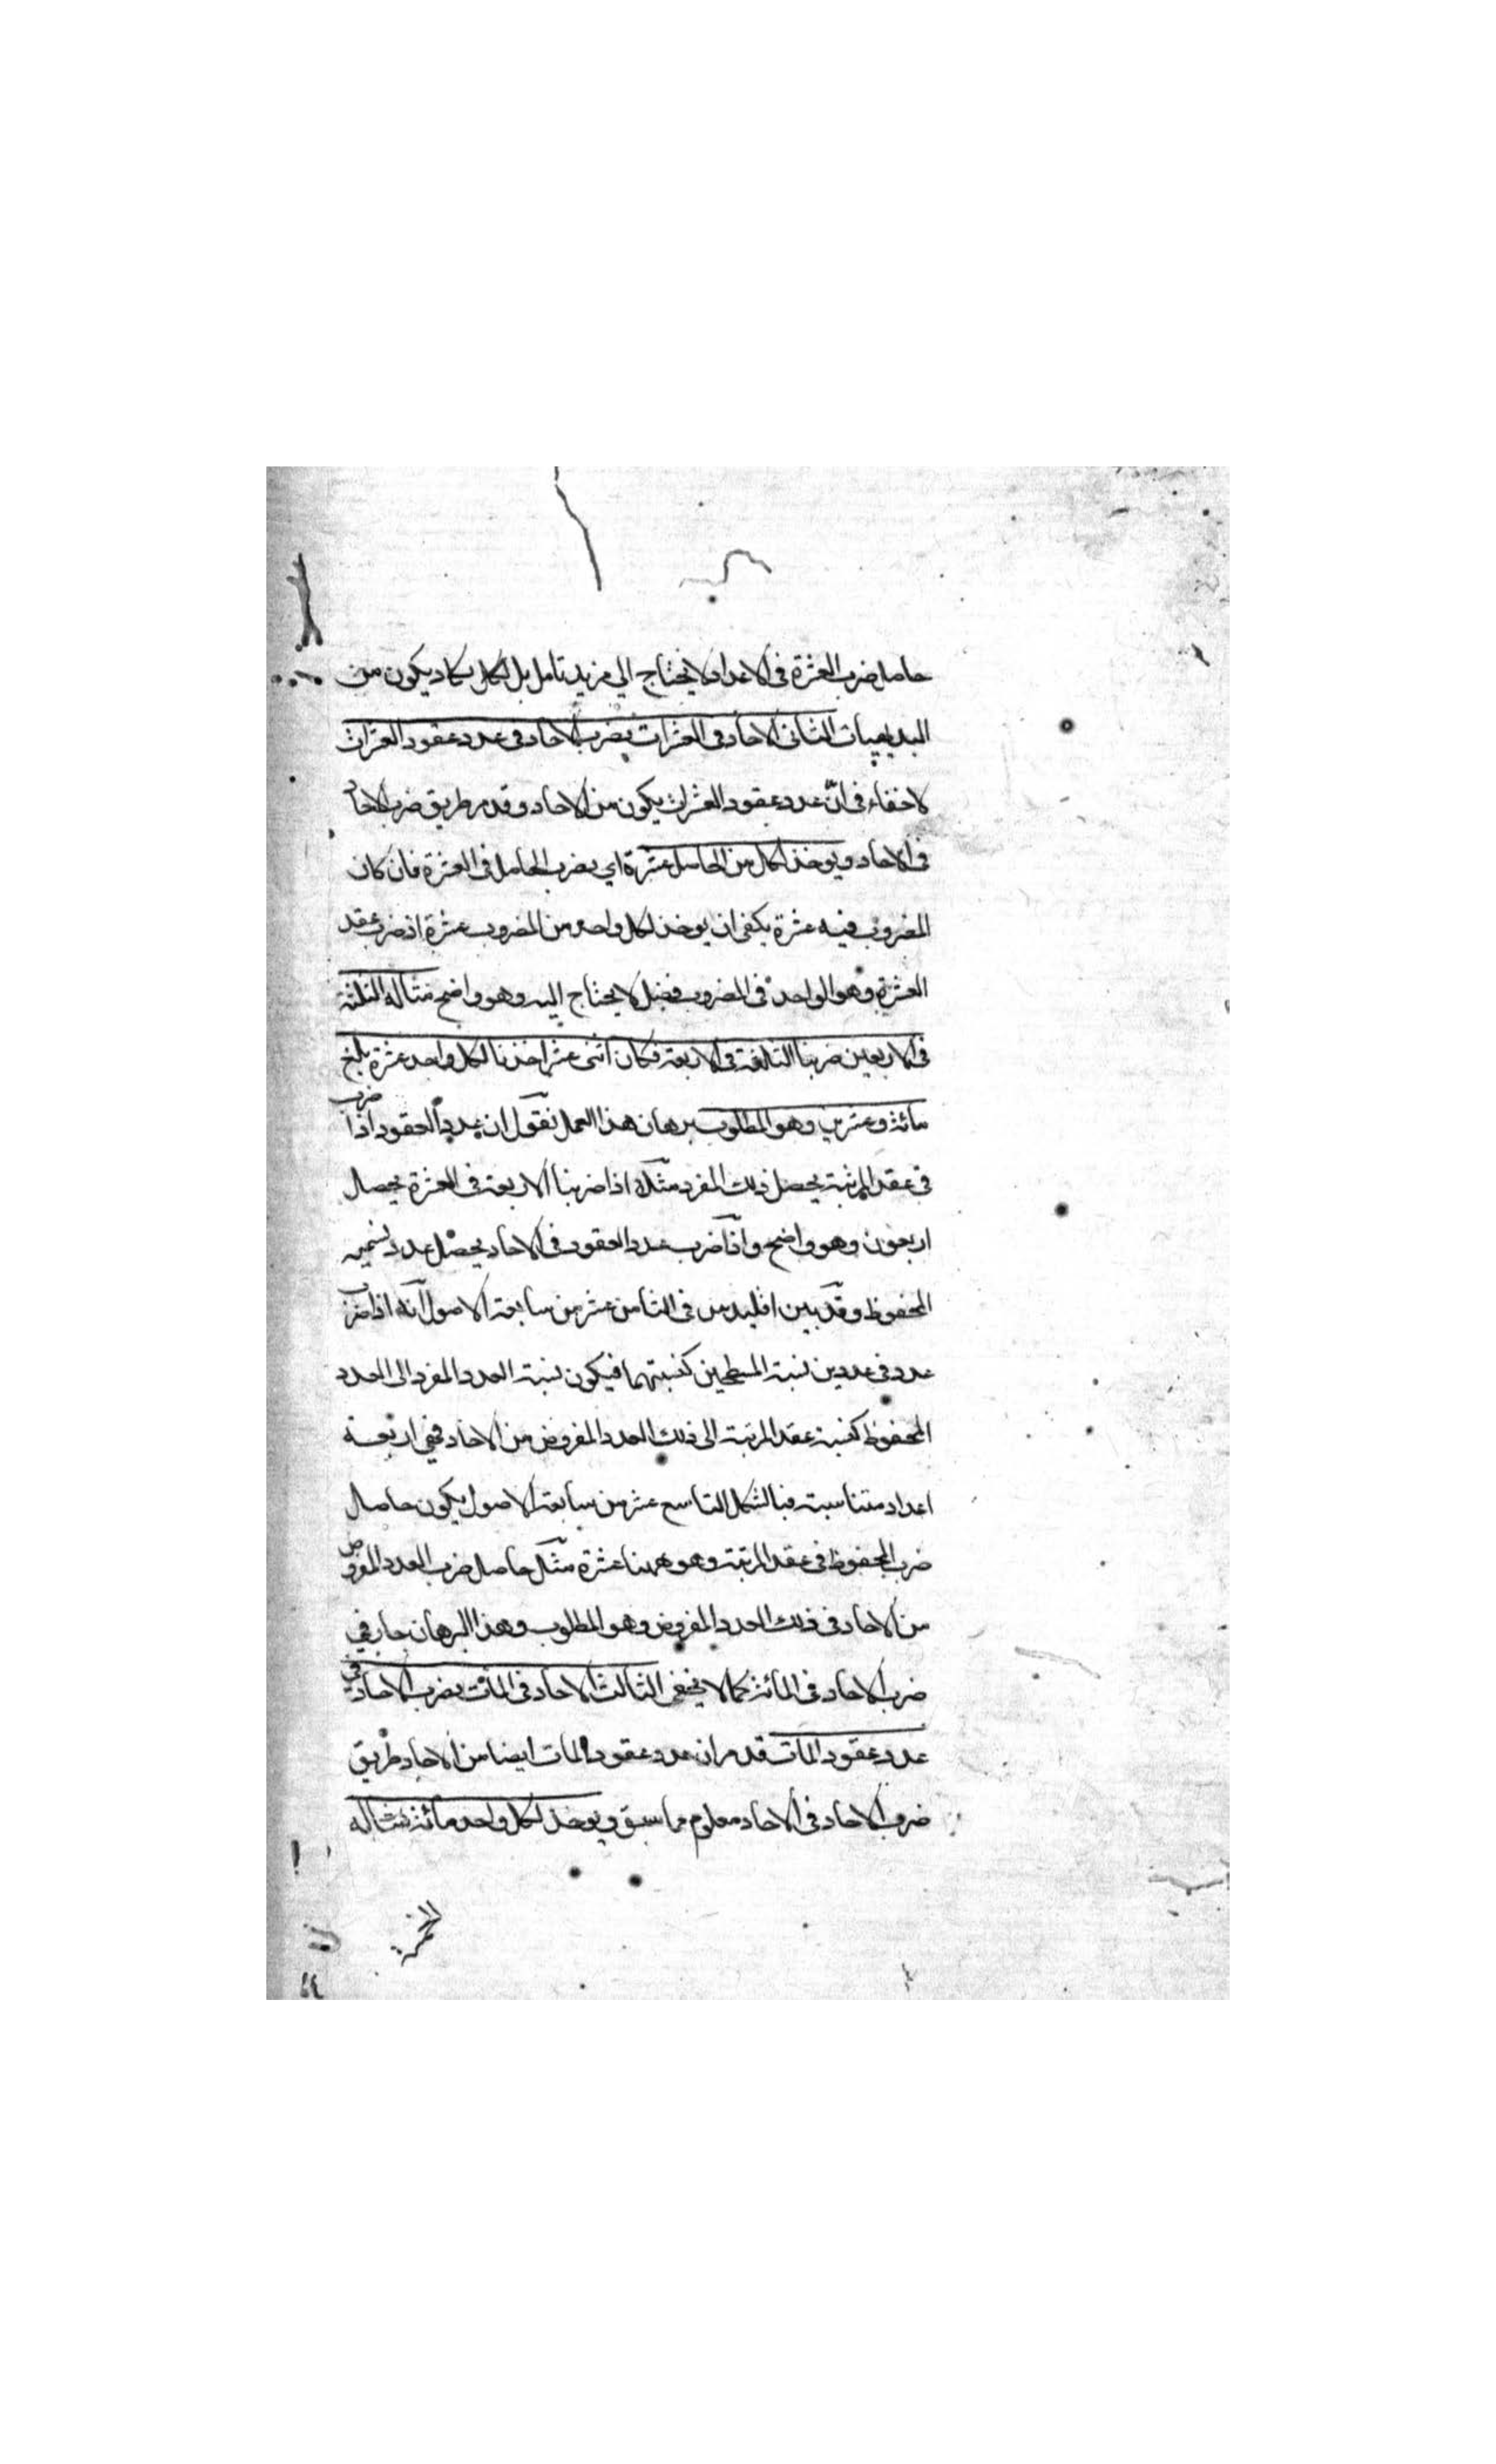 حاصل ضرب العشرة فى الاعداد لا يحتاج الي مزيد تامل بل الكل يكاد يكون من
البديهيات الثانى الاحاد فى العشرات يضرب الاحاد فى عدد عقود العشرات
لا خفاء فى انّ عدد عقود العشرات يكون من الاحاد وقد مر طريق ضرب الاحاد
فى الاحاد ويوخذ لكل من الحاصل عشرة اي يضرب الحاصل فى العشرة فان كان
المضروب فيه عشرة يكفى ان يوخذ لكل واحد من المضروب عشرة اذ ضرب عقد
العشرة وهو الواحد فى المضروب فضل لا يحتاج اليه وهو واضح مثاله الثلثة
فى الاربعين ضربنا الثلثة فى الاربعة فكان اثنى عشر اخذنا لكل واحد عشرة بلغ
مائة وعشرين وهو المطلوب برهان هذا العمل نقول ان عدد العقود اذا ضرب
فى عقد المرتبة يحصل ذلك المفرد مثلا اذا ضربنا الاربعة فى العشرة يحصل
اربعون وهو واضح واذا ضرب عدد العقود فى الاحاد يحصل عدد نسميه
المحفوظ وقد بين اقليدس فى الثامن عشر من سابعة الاصول انه اذا ضرب
عدد فى عددين نسبة المسطحين كنسبتهما فيكون نسبة العدد المفرد الى العدد
المحفوظ كنسبة عقد المرتبة الى ذلك العدد المفروض من الاحاد فهى اربعة
اعداد متناسبة فبالشكل التاسع عشر من سابعة الاصول يكون حاصل
ضرب المحفوظ فى عقد المرتبة وهو ههنا عشرة مثل حاصل ضرب العدد المفروض
من الاحاد فى ذلك العدد المفروض وهو المطلوب وهذا البرهان جار في
ضرب الاحاد فى المائة كما لا يخفى الثالث الاحاد فى المآت يضرب الاحاد فى
عدد عقود المآت قد مر ان عدد عقود المات ايضا من الاحاد وطريق
ضرب الاحاد فى الاحاد معلوم مما سبق ويوخذ لكل واحد مائة مثاله
الخمسة